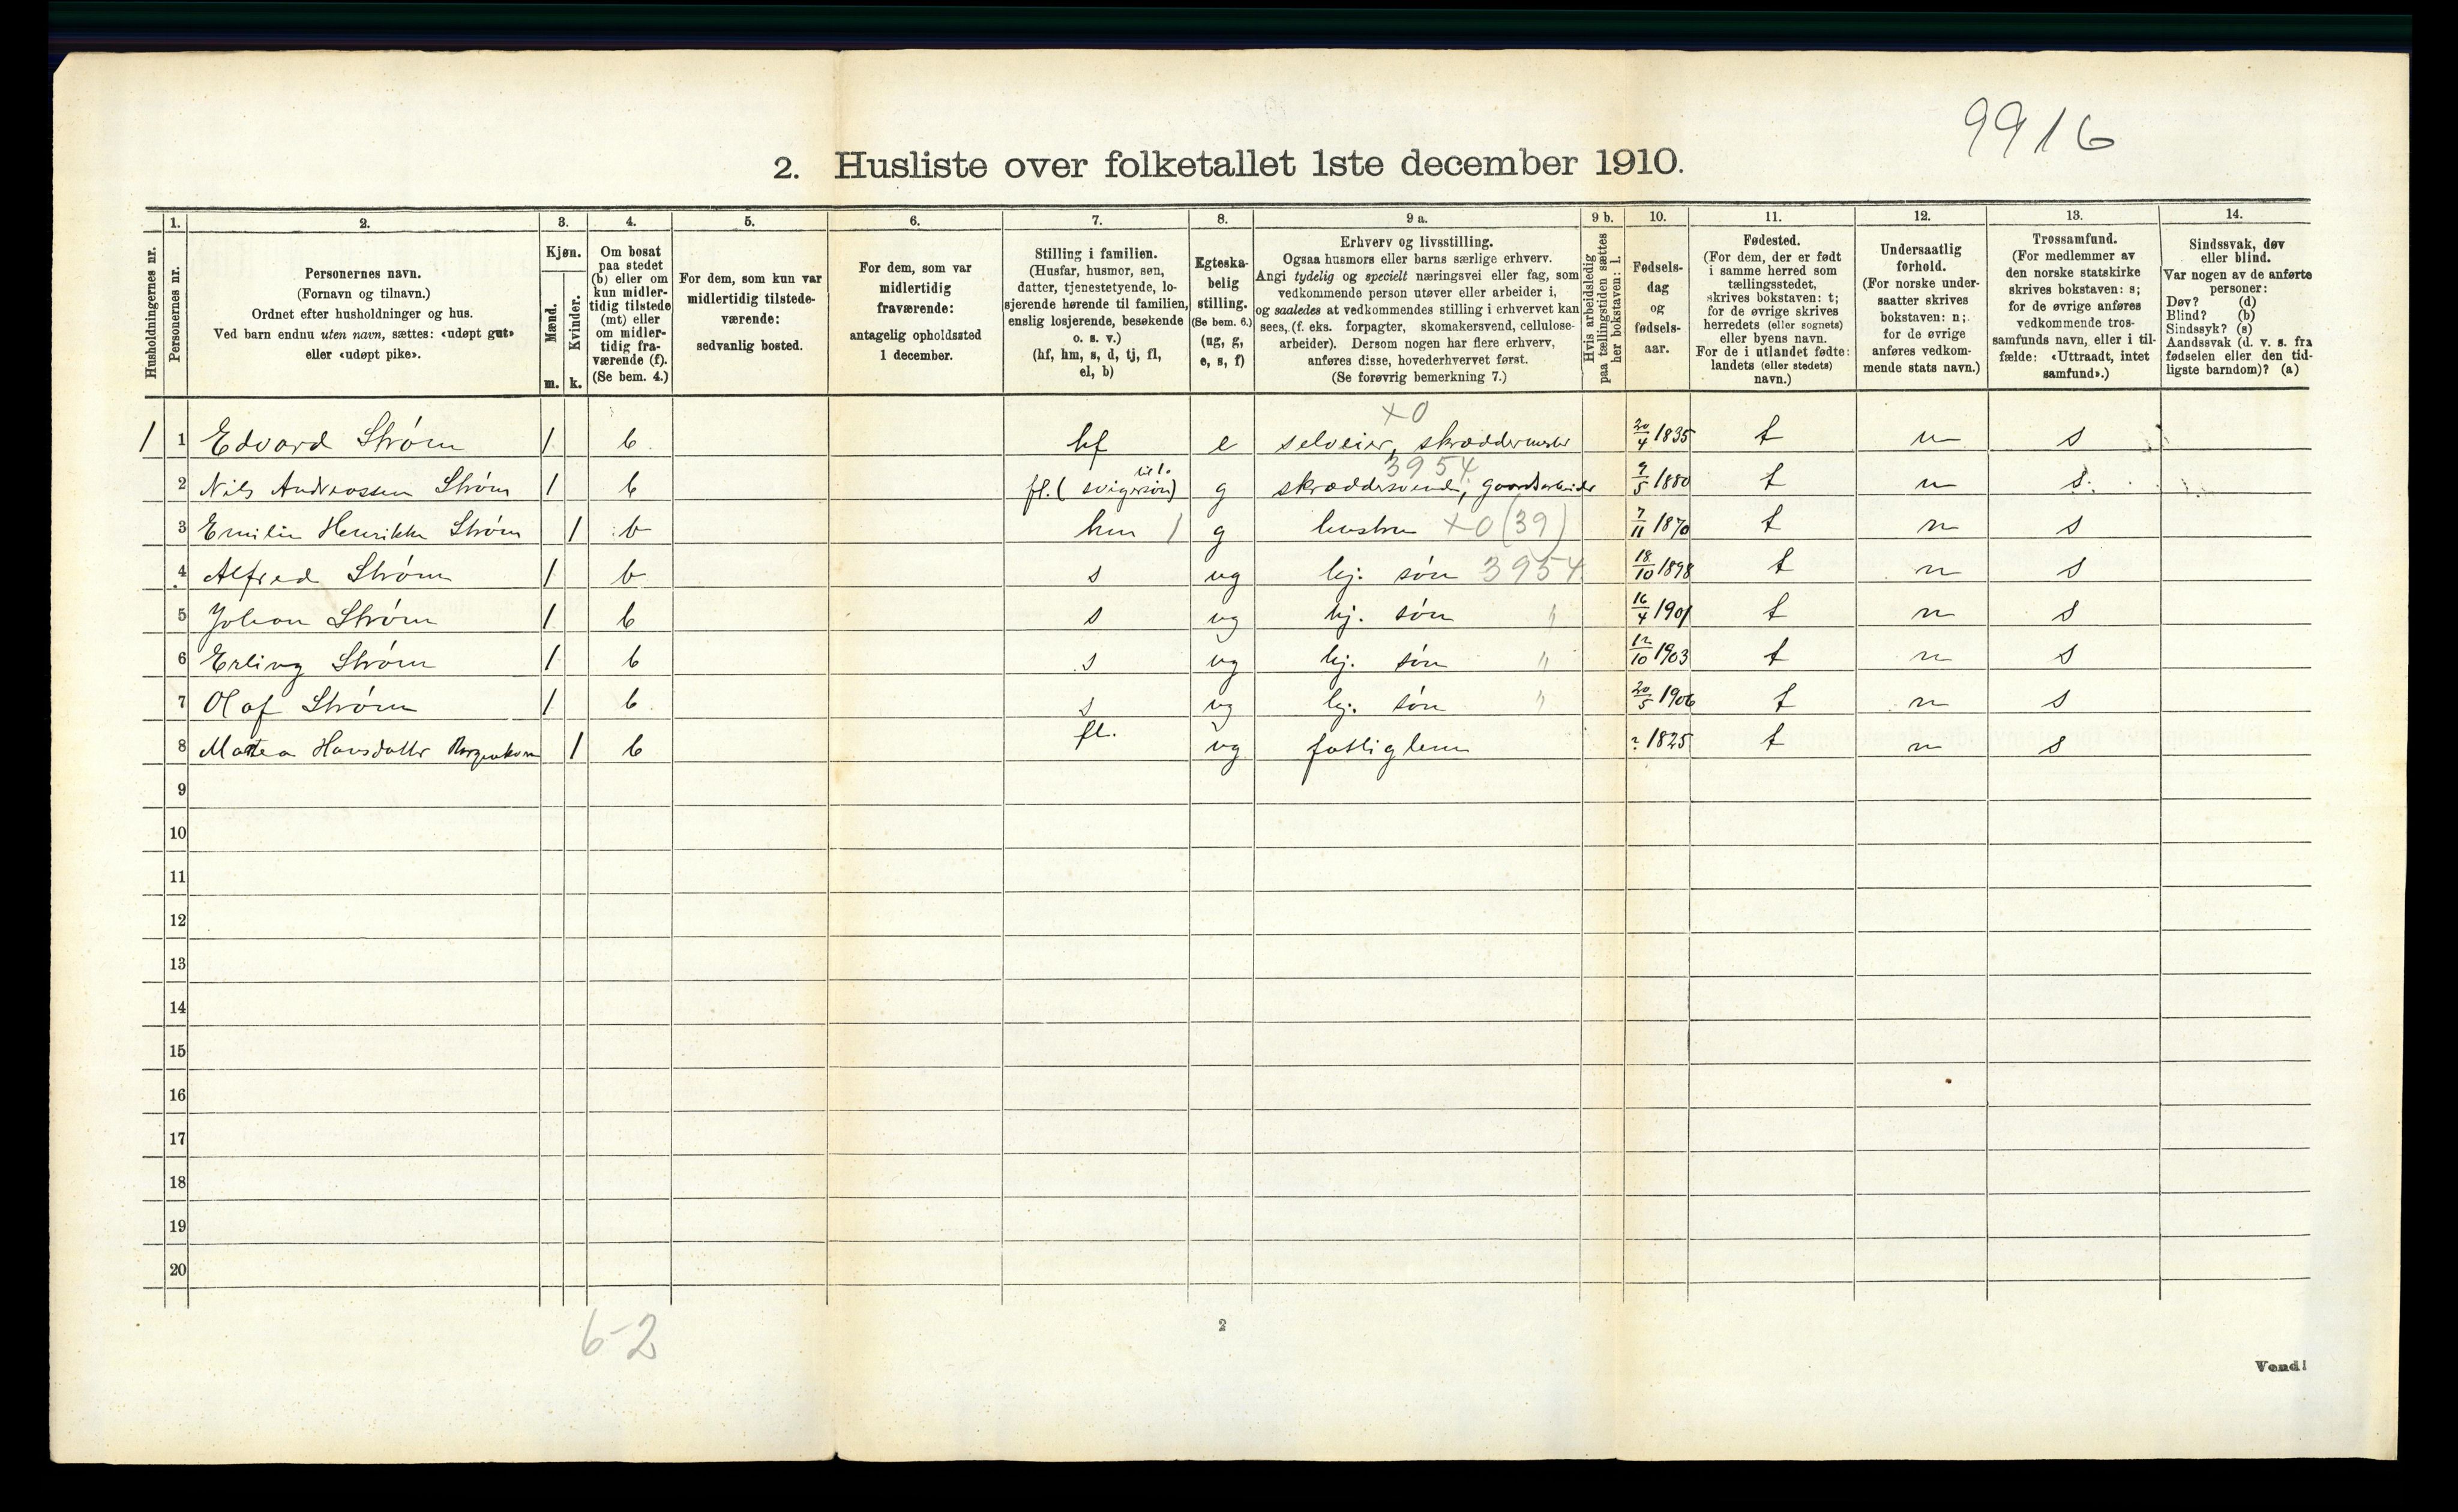 9916
2. Husliste over folketallet 1ste december 1910.
Husholdningernes nr.
1. Personernes nr.
2. Personernes navn.
(Fornavn og tilnavn.)
Ordnet efter husholdninger og hus.
Ved barn endnu uten navn, sættes: «udøpt gut»
eller «udøpt pike».
3. Kjøn.
Mænd. m.
Kvinder. k.
4. Om bosat
paa stedet
(b) eller om
kun midler-
tidig tilstede
(mt) eller
om midler-
tidig fra-
værende (f).
(Se bem. 4.)
5. For dem, som kun var
midlertidig tilstede-
værende:
sedvanlig bosted.
6. For dem, som var
midlertidig
fraværende:
antagelig opholdssted
1 december.
7. Stilling i familien.
(Husfar, husmor, søn,
datter, tjenestetyende, lo-
sjerende hørende til familien,
enslig losjerende, besøkende
o. s. v.)
(hf, hm, s, d, tj, fl,
el, b)
8. Egteska-
belig
stilling.
(Se bem. 6.)
(ug, g,
e, s, f)
9 a. Erhverv og livsstilling.
Ogsaa husmors eller barns særlige erhverv.
Angi tydelig og specielt næringsvei eller fag, som
vedkommende person utøver eller arbeider i,
og saaledes at vedkommendes stilling i erhvervet kan
sees, (f. eks. forpagter, skomakersvend, cellulose-
arbeider). Dersom nogen har flere erhverv,
anføres disse, hovederhvervet først.
(Se forøvrig bemerkning 7.)
9 b. Hvis arbeidsledig
paa tællingstiden sættes
her bokstaven: l.
10. Fødsels-
dag
og
fødsels-
aar.
11. Fødested.
(For dem, der er født
i samme herred som
tællingsstedet,
skrives bokstaven: t;
for de øvrige skrives
herredets (eller sognets)
eller byens navn.
For de i utlandet fødte:
landets (eller stedets)
navn.)
12. Undersaatlig
forhold.
(For norske under-
saatter skrives
bokstaven: n;
for de øvrige
anføres vedkom-
mende stats navn.)
13. Trossamfund.
(For medlemmer av
den norske statskirke
skrives bokstaven: s;
for de øvrige anføres
vedkommende tros-
samfunds navn, eller i til-
fælde: «Uttraadt, intet
samfund».)
14. Sindssvak, døv
eller blind.
Var nogen av de anførte
personer:
Døv? (d)
Blind? (b)
Sindssyk? (s)
Aandssvak (d. v. s. fra
fødselen eller den tid-
ligste barndom)? (a)
+0
1 1 Edvard Strøm 1 b hf e selveier, skræddermester 20/4 1835 t n s
3954
2 Nils Andreassen Strøm 1 b fl. (svigersøn) g skræddersvend, gaardsarbeider 9/5 1880 t n s
3 Emilie Henrikke Strøm 1 b hm 1 g hustru +0 (39) 7/11 1870 t n s
4 Alfred Strøm 1 b s ug hj. søn 3954 18/10 1898 t n s
5 Johan Strøm 1 b s ug hj. søn " 16/4 1901 t n s
6 Erling Strøm 1 b s ug hj. søn " 12/10 1903 t n s
7 Olaf Strøm 1 b s ug hj. søn " 20/5 1906 t n s
8 Martea Hansdatter 1 b fl. ug fattiglem ? 1825 t n s
9
10
11
12
13
14
15
16
17
18
19
20
6-2
2
Vend!